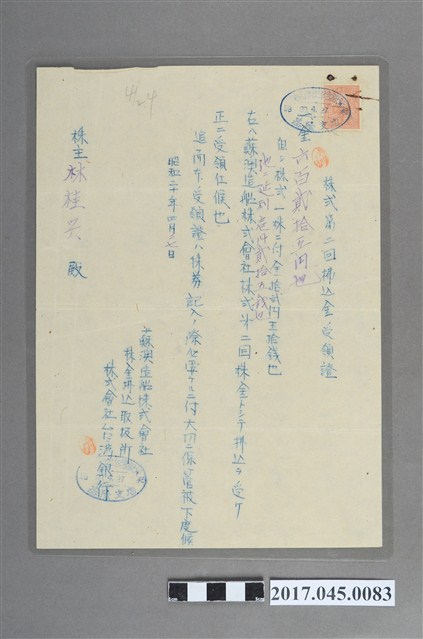 株式第二回拂込金受領證
一金弍百貳拾五円也
但シ株式一株ニ付金拾弍円五拾銭也
右ハ蘇澳造船株式會社株式第二回株金トシテ拂込ヲ受ケ
正ニ受領仕候也
追而本受領證ハ株券記入ノ際必要ニ付大切ニ保管被下度候
昭和二十年四月 日
蘇澳造船株式會社
株金拂込取扱所
株式會社台湾銀行
株主林桂 殿
4/24
2017.045.0083